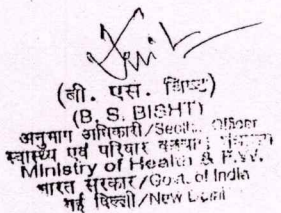 (बी. एस. बिष्ट)
(B. S. BISHT)
अनुभाग अधिकारी/Section Officer
स्वास्थ्य एवं परिवार कल्याण
Ministry of Health & F.W.
भारत सरकार/Govt. of India
नई दिल्ली/New Delhi